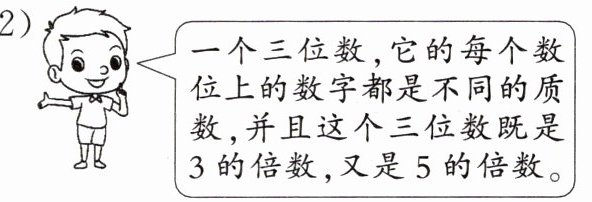 2)
一个三位数,它的每个数
位上的数字都是不同的质
数,并且这个三位数既是
3的倍数,又是5的倍数。